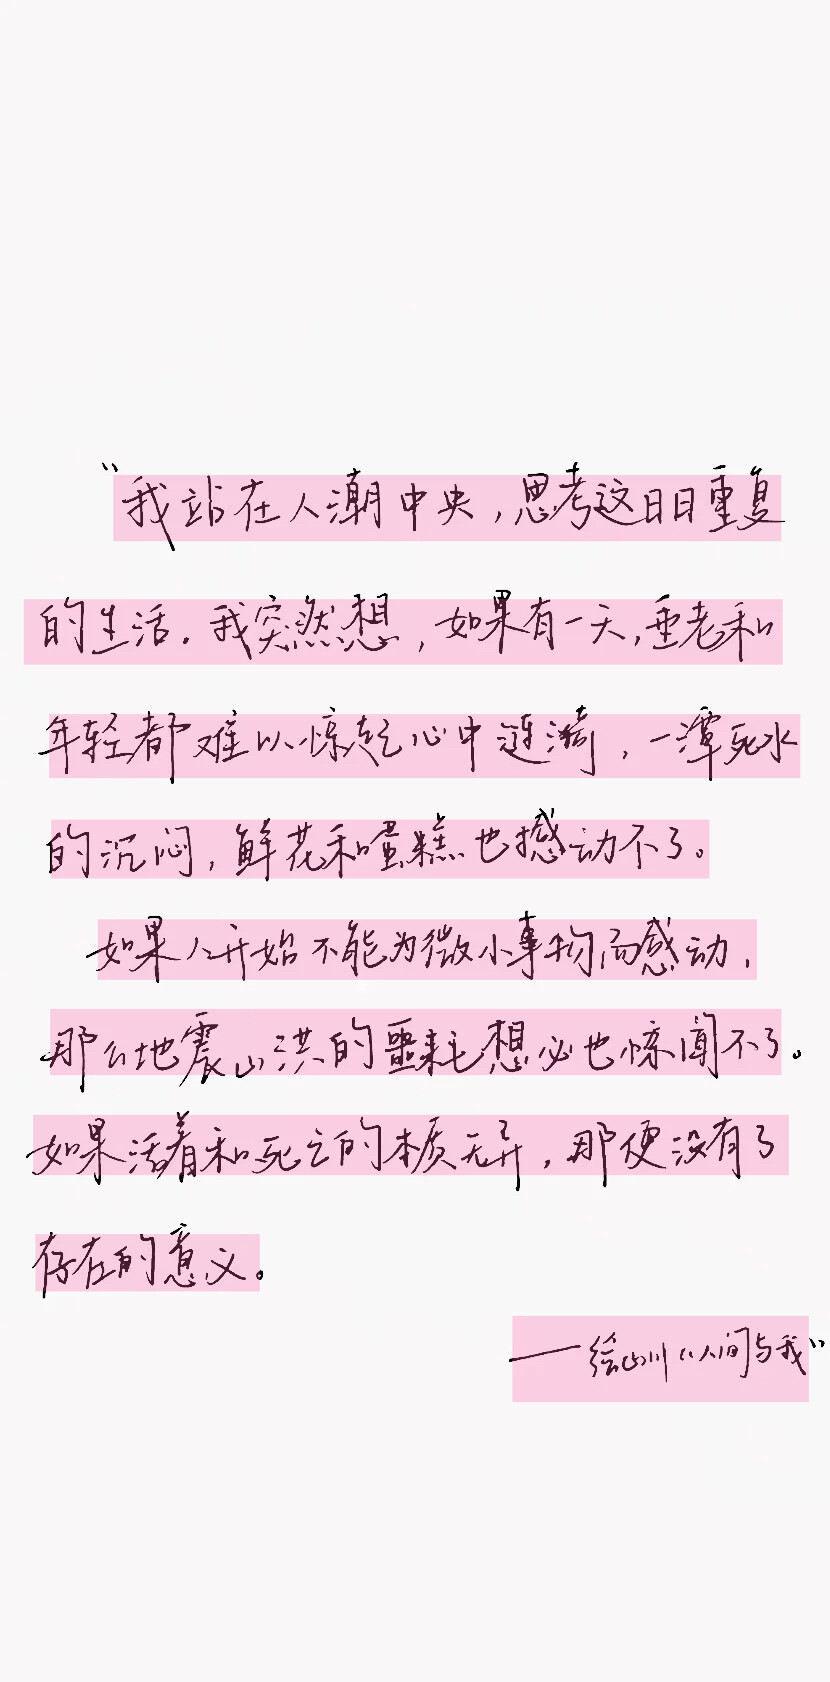 “我站在人潮中央,思考这日日重复
的生活.我突然想,如果有一天,垂老和
年轻都难以惊起心中涟漪,一潭死水
的沉闷,鲜花和蛋糕也撼动不了。
如果人开始不能为微小事物而感动,
那么地震山洪的噩耗想必也惊闻不了。
如果活着和死亡的本质无异,那便没有了
存在的意义。
——绘山川“人间与我”